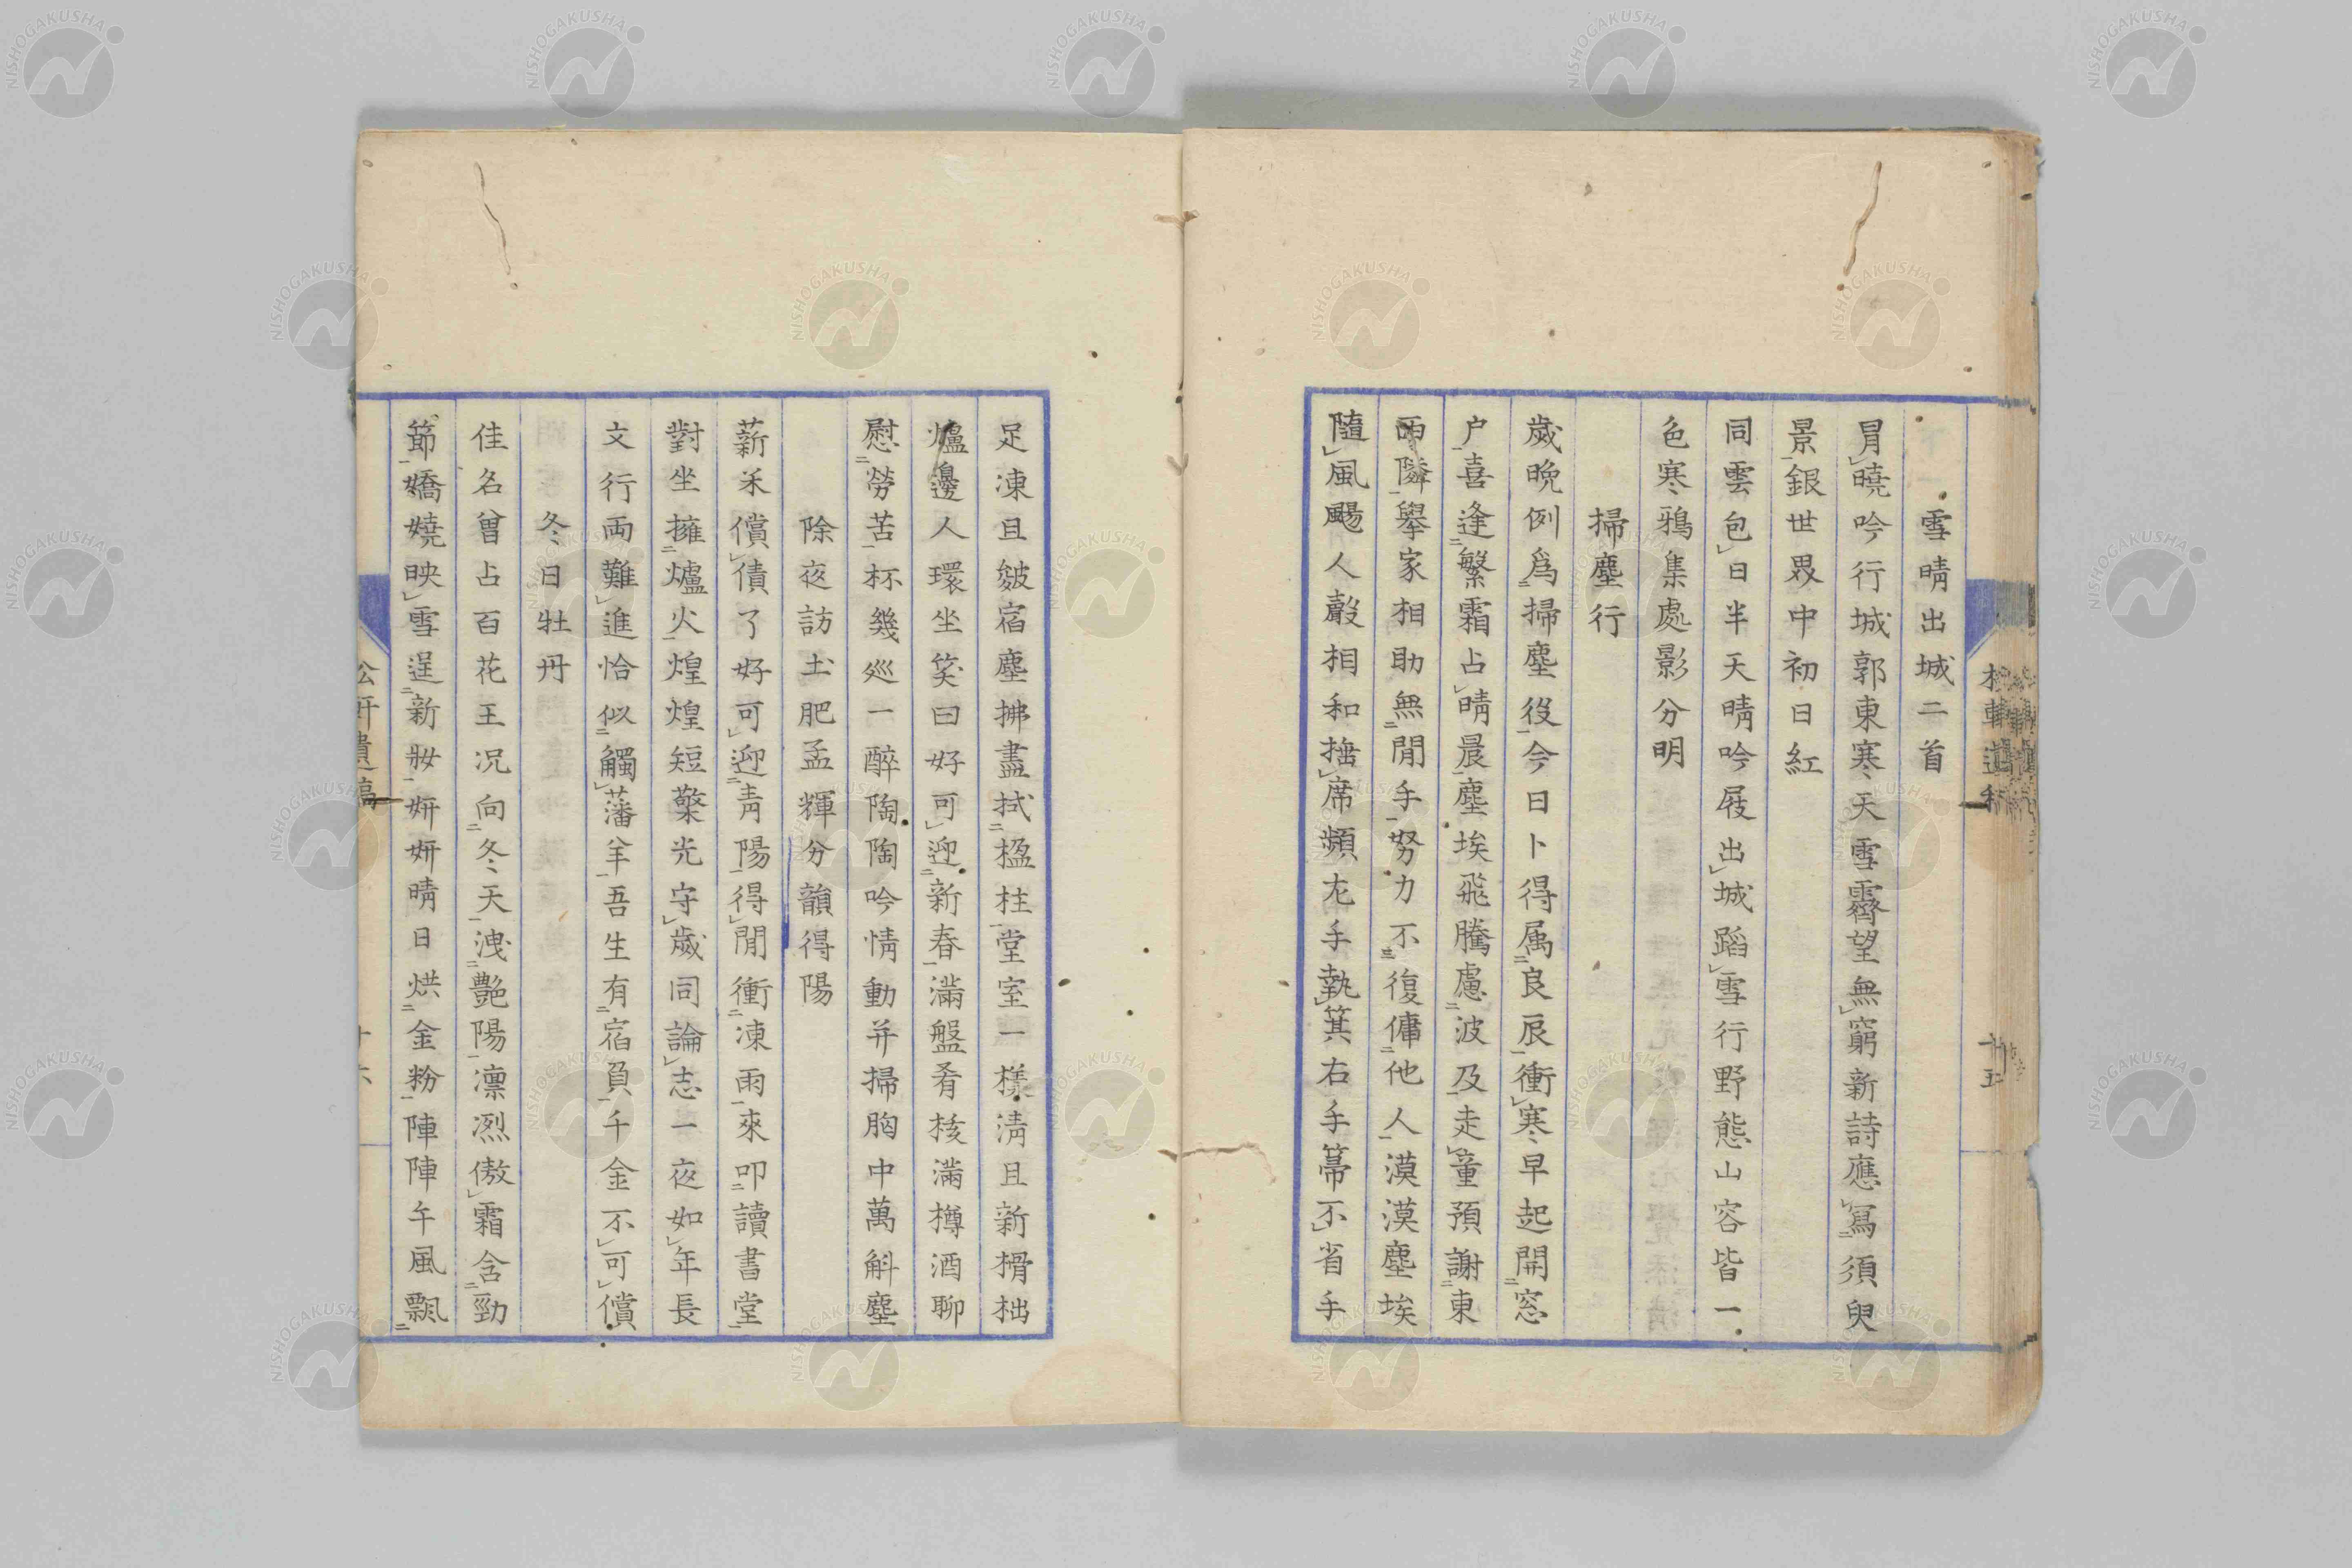 雪晴出城二首
冐曉吟行城郭東寒天雪霽望無窮新詩應寫須臾
景銀世界中初日紅
同雲包日半天晴吟屐出城蹈雪行野態山容皆一
色寒鴉集處影分明
掃塵行
歲晩例爲掃塵役今日卜得属良辰衝寒早起開窓
户喜逢繁霜占晴晨塵埃飛騰慮波及走童預謝東
西隣擧家相助無閒手努力不復傭他人漠漠塵埃
隨風颺人聲相和捲席頻左手執箕右手箒不省手
足凍且皴宿塵拂盡拭楹柱堂室一樣淸且新榾柮
爐邊人環坐笑曰好可迎新春滿盤肴核滿樽酒聊
慰勞苦杯幾巡一醉陶陶吟情動并掃胸中萬斛塵
除夜訪土肥孟輝分韻得陽
薪米償債了好可迎靑陽得閒衝凍雨來叩讀書堂
對坐擁爐火煌煌短檠光守歲同論志一夜如年長
文行両難進恰似觸藩羊吾生有宿負千金不可償
冬日牡丹
佳名曾占百花王况向冬天洩艷陽凛烈傲霜含勁
節嬌嬈映雪逞新妝妍妍晴日烘金粉陣陣午風飄
公軒遺稿
十六
NISHOGAKUSHA